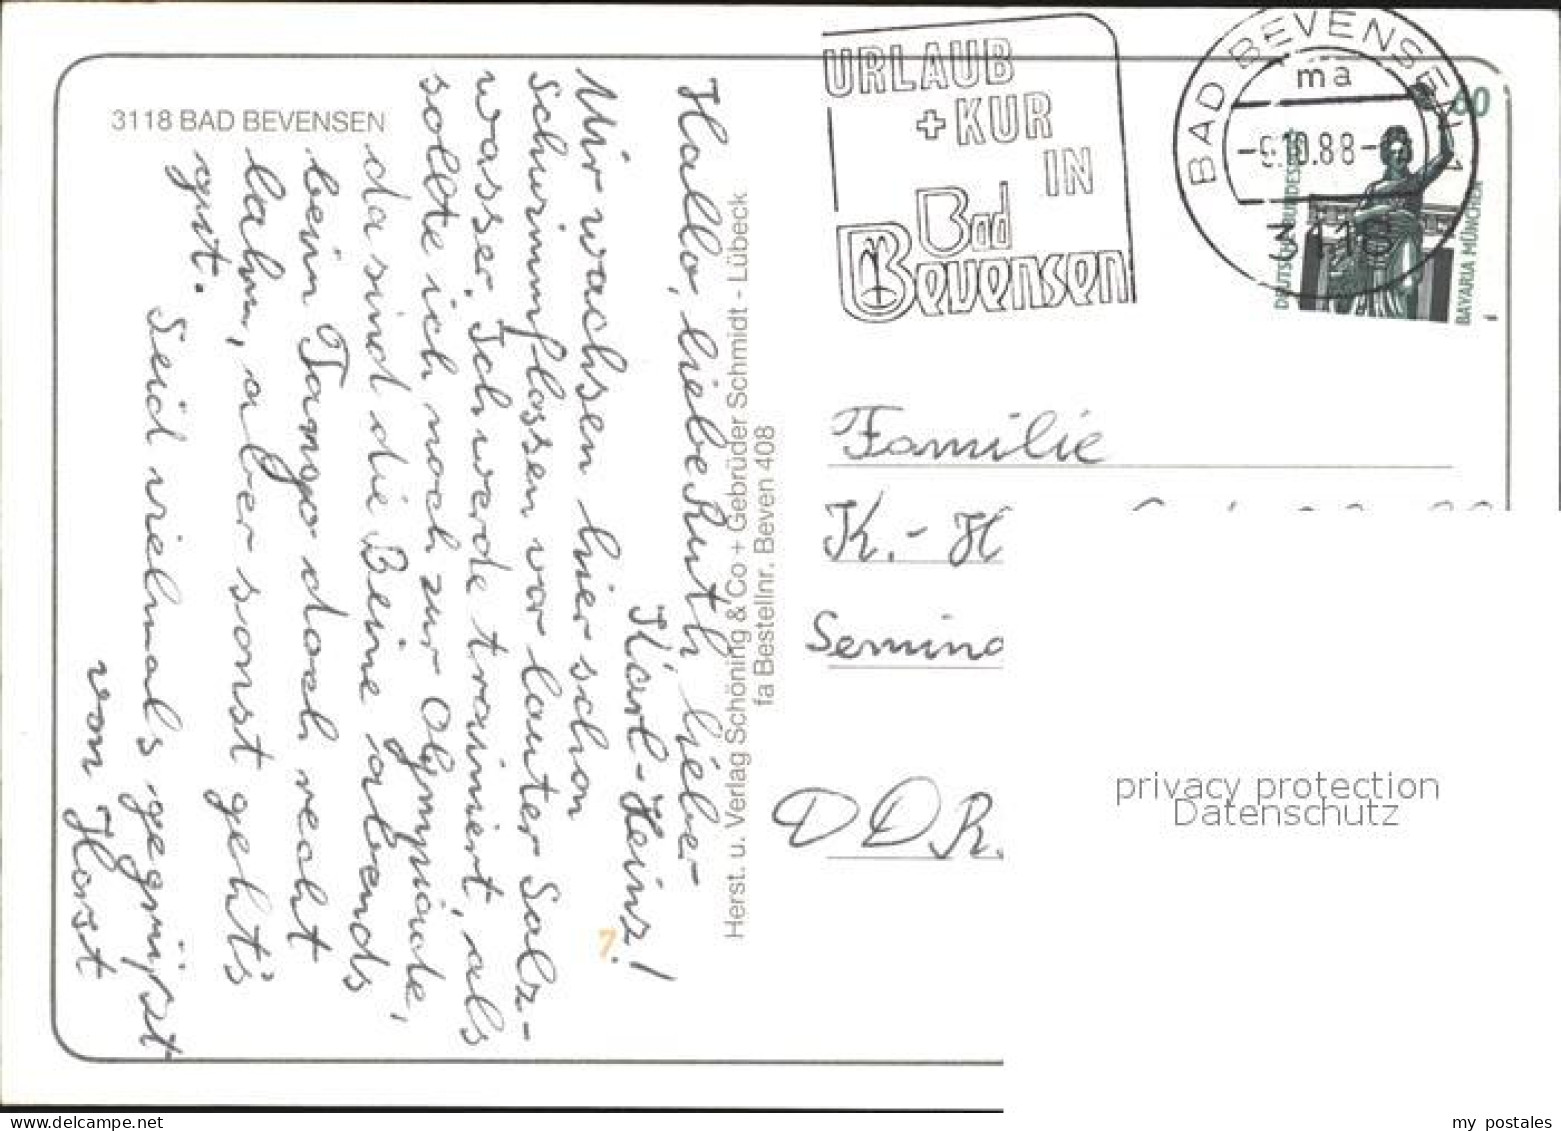 3118 BAD BEVENSEN
Hallo, liebe Ruth, lieber
Karl-Heinz!
Mir wachsen hier schon
Schwimmflossen vor lauter Salz-
wasser. Ich werde trainiert, als
sollte ich noch zur Olympiade,
da sind die Beine abends
beim Tango doch recht
lahm, aber sonst geht's
gut.
Seid vielmals gegrüßt
von Horst
7.
Herst. u. Verlag Schöning & Co + Gebrüder Schmidt - Lübeck
fa Bestellnr. Beven 408
URLAUB
+ KUR
IN
Bad
Bevensen
BAD BEVENSEN 1
ma
10.88
3118
60
DEUTSCHE BUNDESPOST
BAVARIA MÜNCHEN
Familie
K.-H
Semina
DDR.
privacy protection
Datenschutz
my postales